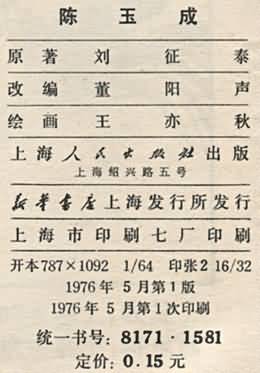 陈玉成
原著刘征泰
改编董阳声
绘画王亦秋
上海人民出版社出版
上海绍兴路五号
新华书店上海发行所发行
上海市印刷七厂印刷
开本787×1092 1/64 印张2 16/32
1976年5月第1版
1976年5月第1次印刷
统一书号：8171·1581
定价：0.15元